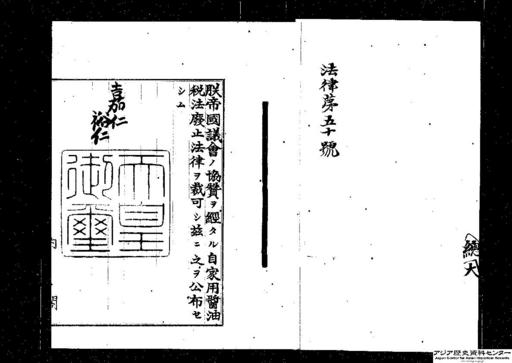 法律第五十號
朕帝國議會ノ協贊ヲ經タル自家用醬油
税法廢止法律ヲ裁可シ茲ニ之ヲ公布セ
シム
嘉仁
裕仁
天皇
御璽
內閣
アジア歴史資料センター
Japan Center for Asian Historical Records